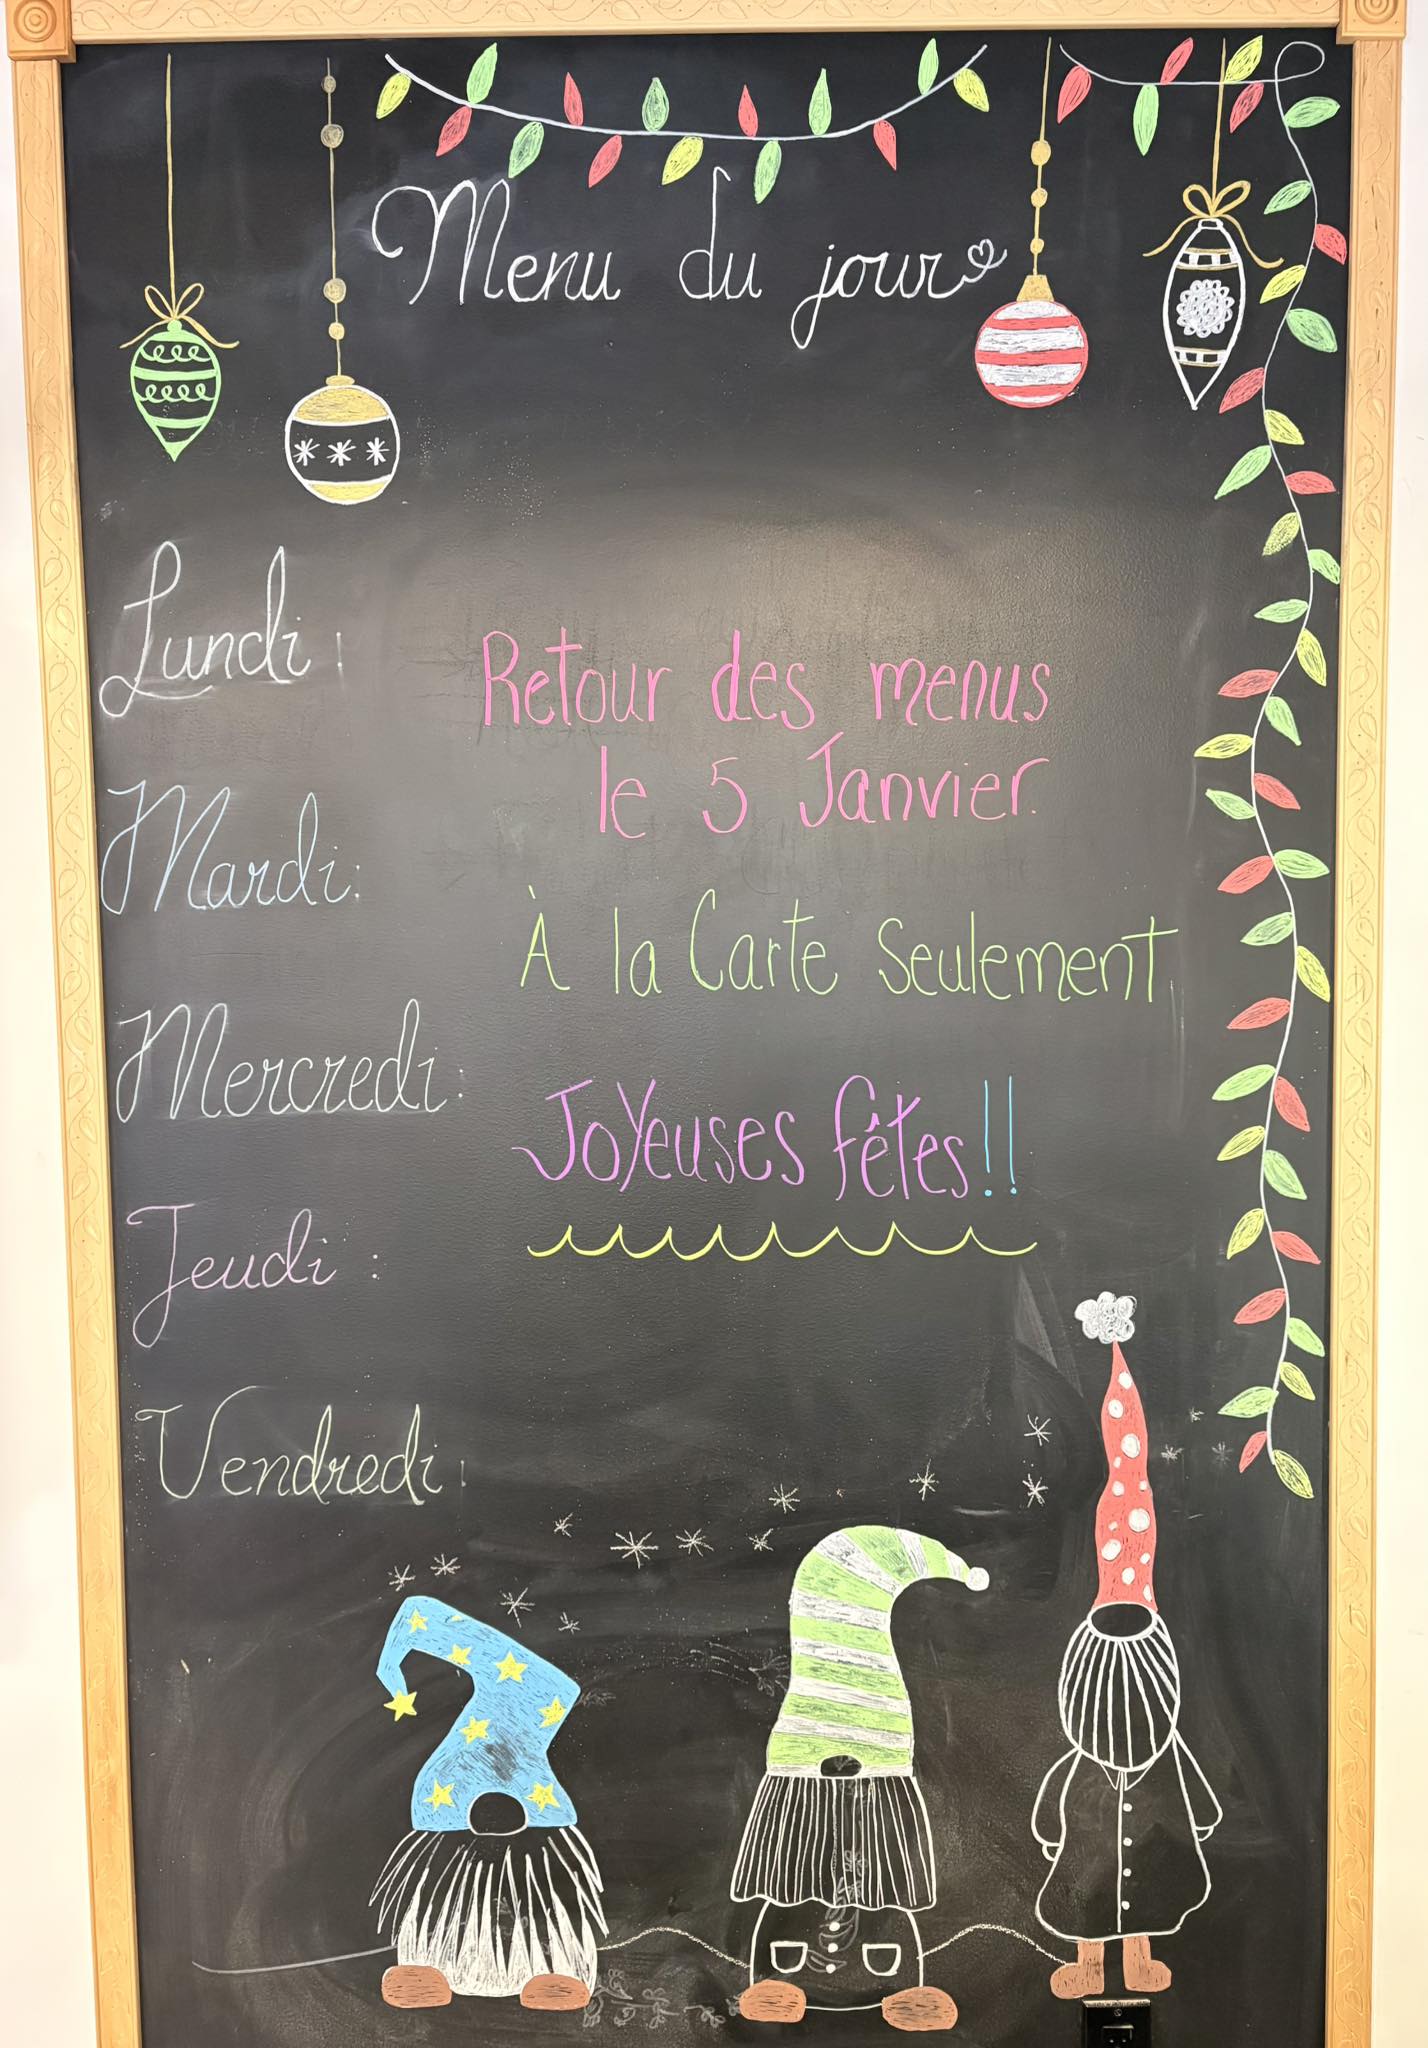 Menu du jour
Lundi :
Retour des menus
le 5 Janvier.
Mardi :
À la Carte Seulement
Mercredi :
Joyeuses fêtes!!
Jeudi :
Vendredi :